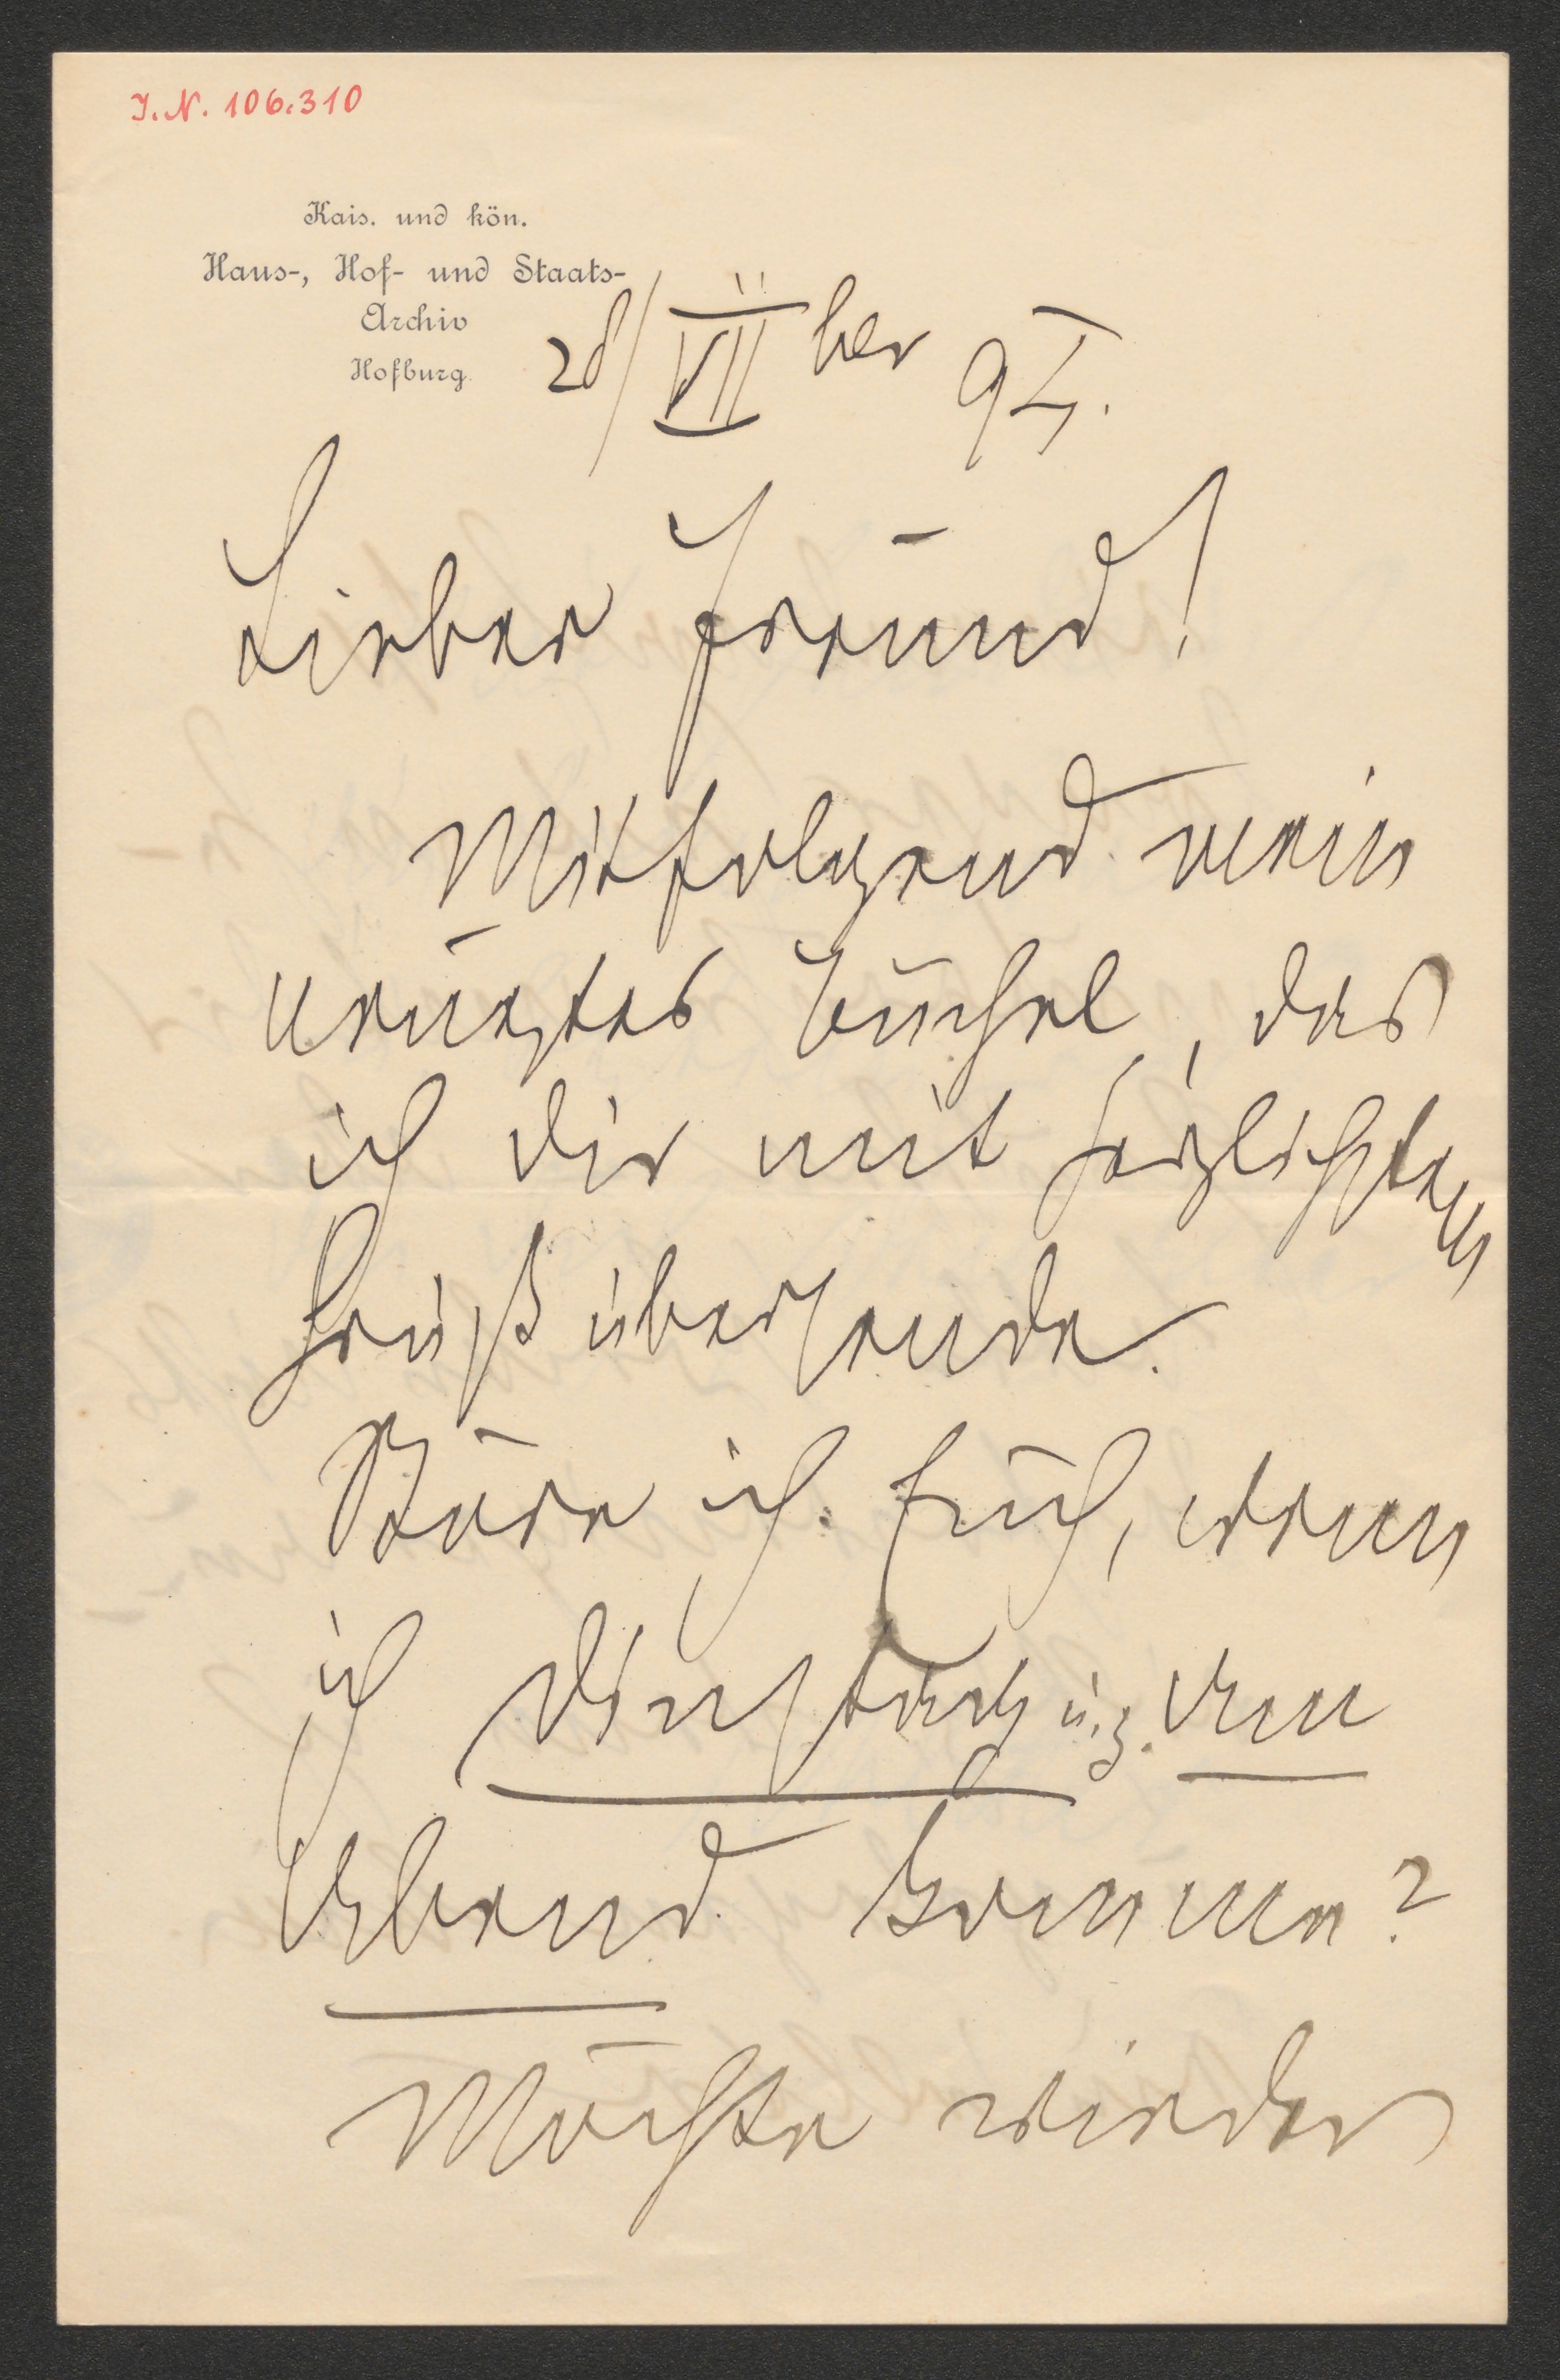 I.N. 106.310
Kais. und kön.
Haus-, Hof- und Staats-
Archiv
Hofburg
28/VIIber 95.
Lieber Freund!
Mitfolgend mein
neuestes Büchel, das
ich dir mit herzlichstem
Gruß übersende.
Störe ich Euch, wenn
ich Dinstag u. z. am
Abend komme?
Möchte wieder